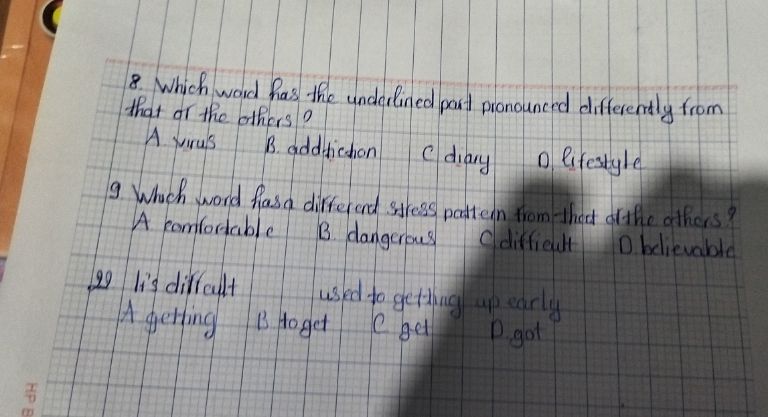 8. Which word has the underlined part pronounced differently from
that of the others?
A. virus B. addhiction C diary D. lifestyle
9 Which word has a differend stress pattern from that of the others?
A comfortable B. dangerous C. difficult D. believable
20 It's difficult used to getting up early
A getting B to get C get D. got
HP B